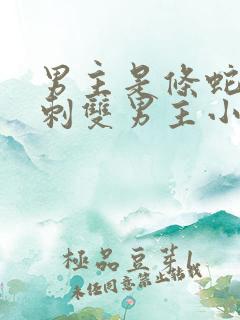 男主是條蛇
刺雙男主小
極品豆芽
未任同意禁止轉載